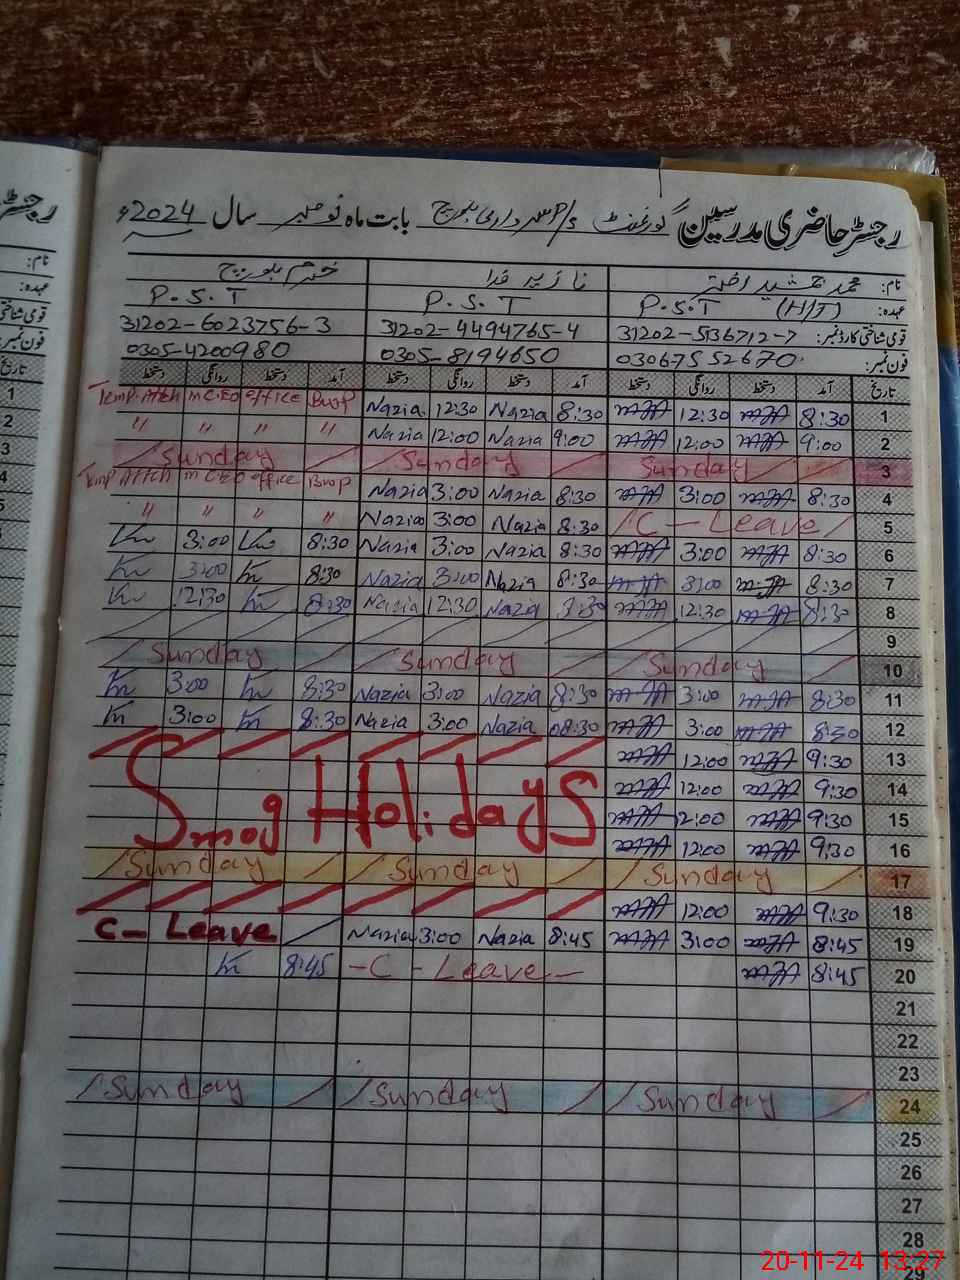 رجسٹر حاضری مدرسین گورنمنٹ P/S سردار بلوچ بابت ماہ نومبر سال 2024ء
نام: محمد جمشید اختر نازیہ فدا بلوچ
عہدہ: P.S.T (H/T) P.S.T P.S.T
قومی شناختی کارڈ نمبر: 31202-4494765-4 31202-6023756-3
فون نمبر: 03067552670 0305-8194650 0305-4200980
تاریخ آمد دستخط روانگی دستخط آمد دستخط روانگی دستخط آمد دستخط روانگی دستخط
Temp. Attch in CEO office Bwp Nazia 12:30 Nazia 8:30 12:30 8:30 1
" " " " Nazia 12:00 Nazia 9:00 12:00 9:00 2
Sunday Sunday Sunday 3
Temp Attch in CEO office Bwp Nazia 3:00 Nazia 8:30 3:00 8:30 4
" " " " Nazia 3:00 Nazia 8:30 C-Leave 5
3:00 8:30 Nazia 3:00 Nazia 8:30 3:00 8:30 6
3:00 8:30 Nazia 3:00 Nazia 8:30 3:00 8:30 7
12:30 8:30 Nazia 12:30 Nazia 8:30 12:30 8:30 8
9
Sunday Sunday Sunday 10
3:00 8:30 Nazia 3:00 Nazia 8:30 3:00 8:30 11
3:00 8:30 Nazia 3:00 Nazia 08:30 3:00 8:30 12
12:00 9:30 13
Smog HolidayS 12:00 9:30 14
12:00 9:30 15
12:00 9:30 16
Sunday Sunday Sunday 17
12:00 9:30 18
C-Leave Nazia 3:00 Nazia 8:45 3:00 8:45 19
8:45 -C-Leave- 8:45 20
21
22
23
Sunday Sunday Sunday 24
25
26
27
28
29
20-11-24 13:27